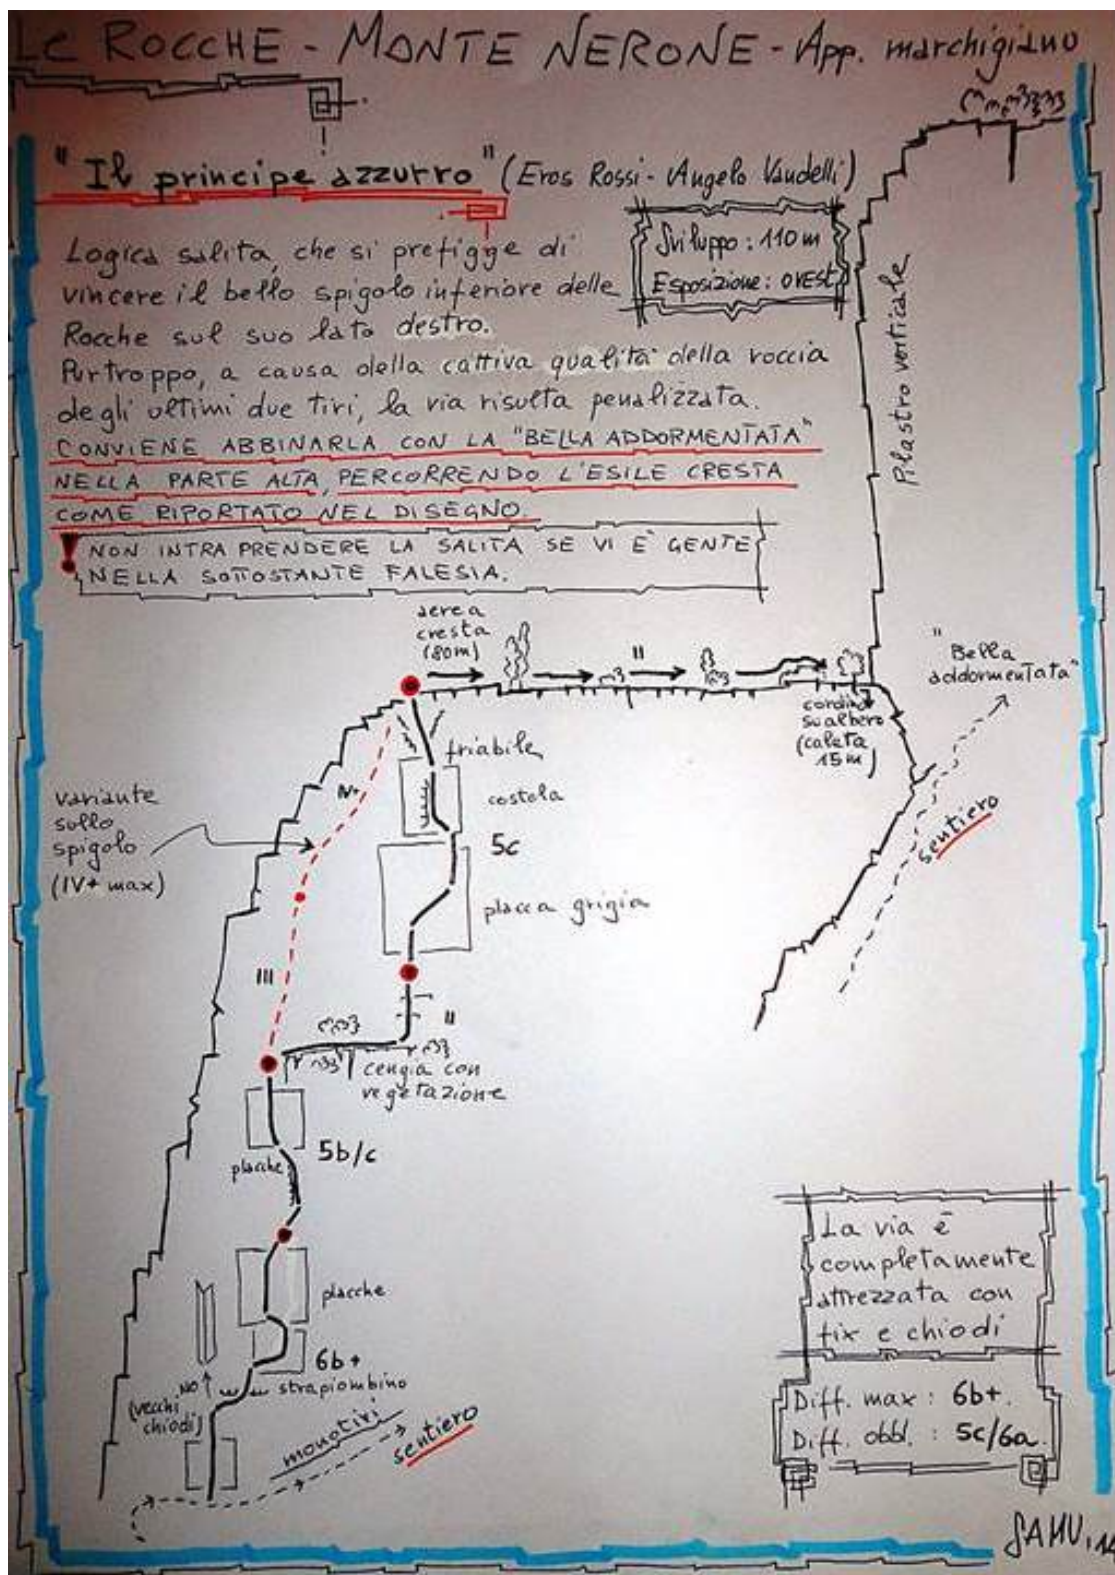 LE ROCCHE - MONTE NERONE - App. marchigiano
"Il principe azzurro" (Eros Rossi - Angelo Vandelli)
Sviluppo: 110 m
Esposizione: ovest
Logica salita, che si prefigge di
vincere il bello spigolo inferiore delle
Rocche sul suo lato destro.
Purtroppo, a causa della cattiva qualità della roccia
degli ultimi due tiri, la via risulta penalizzata.
CONVIENE ABBINARLA CON LA "BELLA ADDORMENTATA"
NELLA PARTE ALTA, PERCORRENDO L'ESILE CRESTA
COME RIPORTATO NEL DISEGNO.
! NON INTRAPRENDERE LA SALITA SE VI È GENTE
NELLA SOTTOSTANTE FALESIA.
Pilastro verticale
aerea
cresta
(80m)
II
"Bella
addormentata"
cordino
su albero
(calata
15m)
sentiero
friabile
costola
IV+
variante
sullo
spigolo
(IV+ max)
5c
placca grigia
III
II
cengia con
vegetazione
5b/c
placche
placche
6b+
strapiombino
NO
(vecchi
chiodi)
monotiri
sentiero
La via è
completamente
attrezzata con
fix e chiodi
Diff. max : 6b+.
Diff. obbl. : 5c/6a.
SAMU, 14